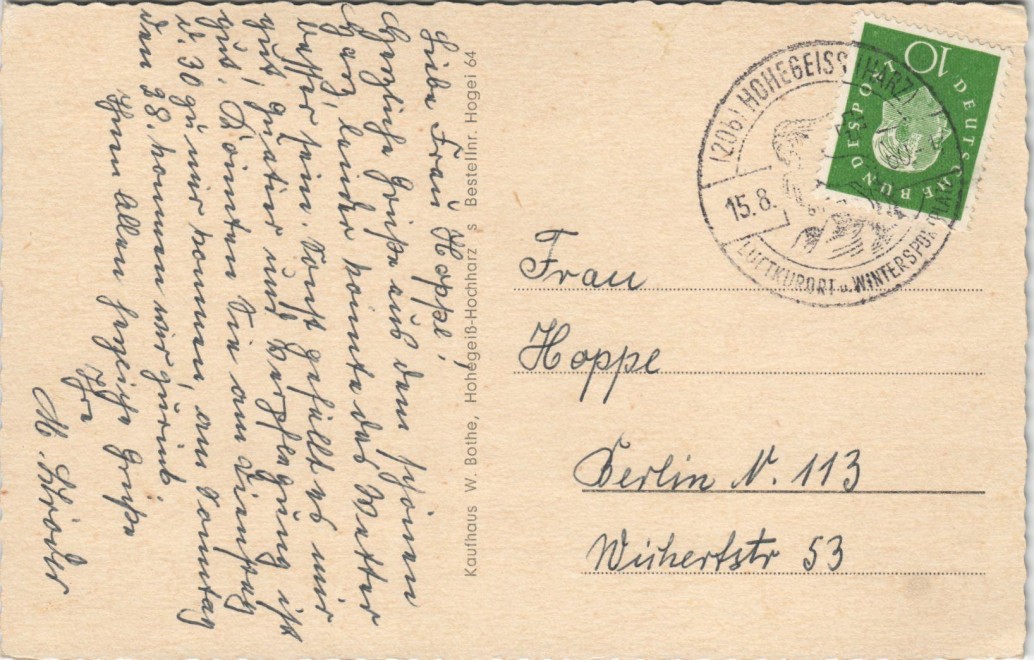 Liebe Frau Hoppe!
Herzliche Grüße aus dem schönen
Harz, leider könnte das Wetter
besser sein. Sonst gefällt es mir
gut, Quatier und Verpflegung ist
gut. Könnten Sie am Dienstag
d. 30 zu mir kommen, am Sonntag
den 28. kommen wir zurück.
Ihnen allen herzliche Grüße
Ihre
M.
Kaufhaus W. Bothe, Hohegeiß-Hochharz s Bestellnr. Hogei 64
(20b) HOHEGEISS (HARZ)
15.8.
LUFTKURORT u. WINTERSPORT
10
DEUTSCHE BUNDESPOST
Frau
Hoppe
Berlin N. 113
Wichertstr 53